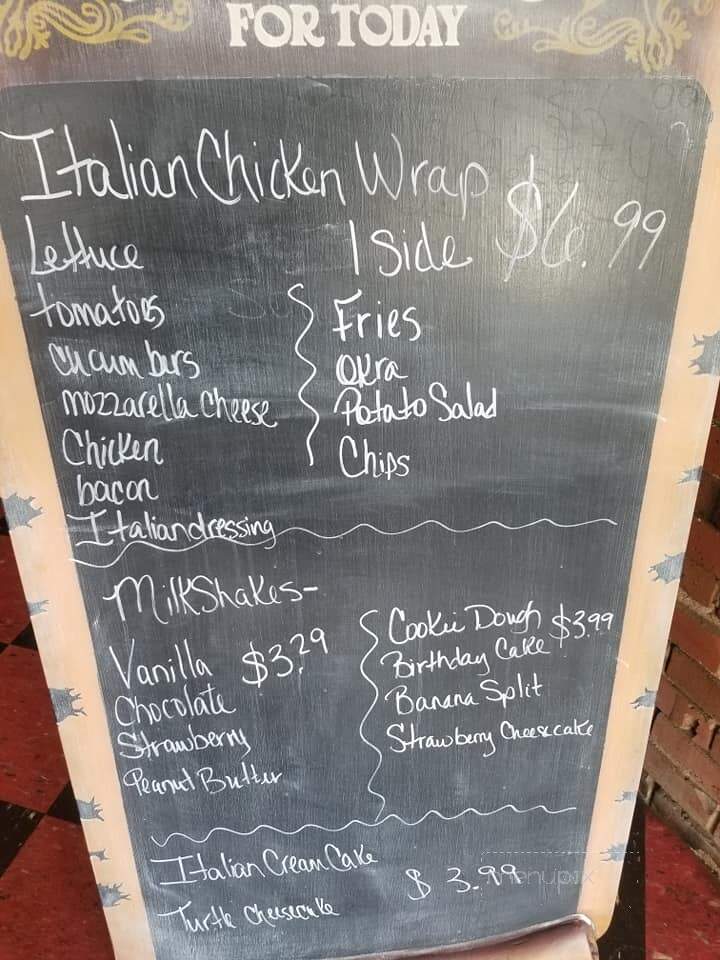 FOR TODAY
Italian Chicken Wrap $6.99
Lettuce
tomatoes
cucumbers
mozzarella cheese
Chicken
bacon
Italian dressing
1 Side
Fries
Okra
Potato Salad
Chips
MilkShakes-
Vanilla $3.29
Chocolate
Strawberry
Peanut Butter
Cookie Dough $3.99
Birthday Cake
Banana Split
Strawberry Cheesecake
Italian Cream Cake
Turtle Cheesecake
$ 3.99
menupix